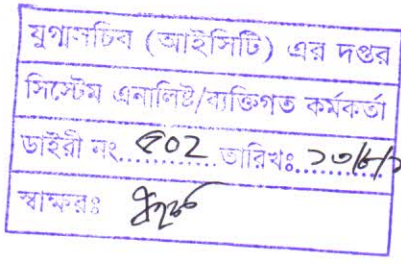 যুগ্মসচিব (আইসিটি) এর দপ্তর
সিস্টেম এনালিষ্ট/ব্যক্তিগত কর্মকর্তা
ডাইরী নং..........৫০২ তারিখঃ..........
স্বাক্ষরঃ